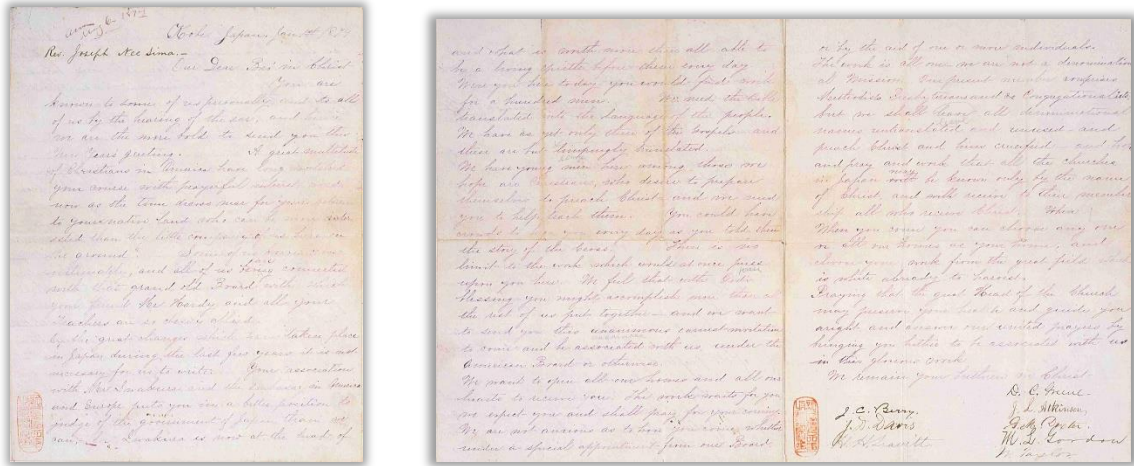 Kobe Japan, Jan 1st 1874
Rev. Joseph Nee Sima.–
Our Dear Bro' in Christ
You are
known to some of us personally and to all
of us by the hearing of the ear, and hence
we are the more bold to send you this
New Years greeting. A great multitude
of Christians in America have long
your course with prayerful interest and
now as the time draws near for your return
to your native land who can be more inter
ested than the little company of us here on
the ground.
and all of us being connected
with that grand old Board with which
your friend Mr Hardy and all your
teachers are so closely allied.
Of the great changes which have taken place
in Japan during the last few years it is not
necessary for us to write. Your association
with Mr. and the Embassy in America
and Europe puts you in a better position to
judge of the government of Japan than we
can. is now at the head of
and what is worth more than all able to
be a living epistle before them every day
Were you here today you would find work
for a hundred men. We need the Bible
translated into the language of the people.
We have as yet only three of the Gospels and
these are but lispingly translated.
We have young men here among those we
hope are Christians, who desire to prepare
themselves to preach Christ and we need
you to help teach them. You could have
crowds to hear you every day as you told them
the story of the Cross. There is no
limit to the work which would at once press
upon you here. We feel that with God's
blessing you might accomplish more than all
the rest of us put together – and we want
to send you this unanimous earnest invitation
to come and be associated with us, under the
American Board or otherwise.
We want to open all our houses and all our
hearts to receive you. The work waits for you
we expect you and shall pray for your coming.
We are not anxious as to how you come, whether
under a special appointment from our Board
or by the aid of one or more individuals.
The work is all one we are not a denomination
al Mission. Our present number comprises
Methodists Presbyterians and Congregationalists
but we shall leave all denominational
names untranslated and unused and
preach Christ and him crucified and
and pray and work that all the churches
in Japan may be known only by the name
of Christ, and will receive to their member
ship all who receive Christ.
When you come you can choose any one
or all our homes as your home, and
choose your work from the great field which
is white already to harvest.
Praying that the great Head of the Church
may preserve your health and guide you
aright and answer our united prayers by
bringing you hither to be associated with us
in this glorious work
We remain your brethren in Christ.
D. C. Greene
J. C. Berry. J. L. Atkinson,
J. D. Davis
H. H. Leavitt M. L. Gordon
W Taylor